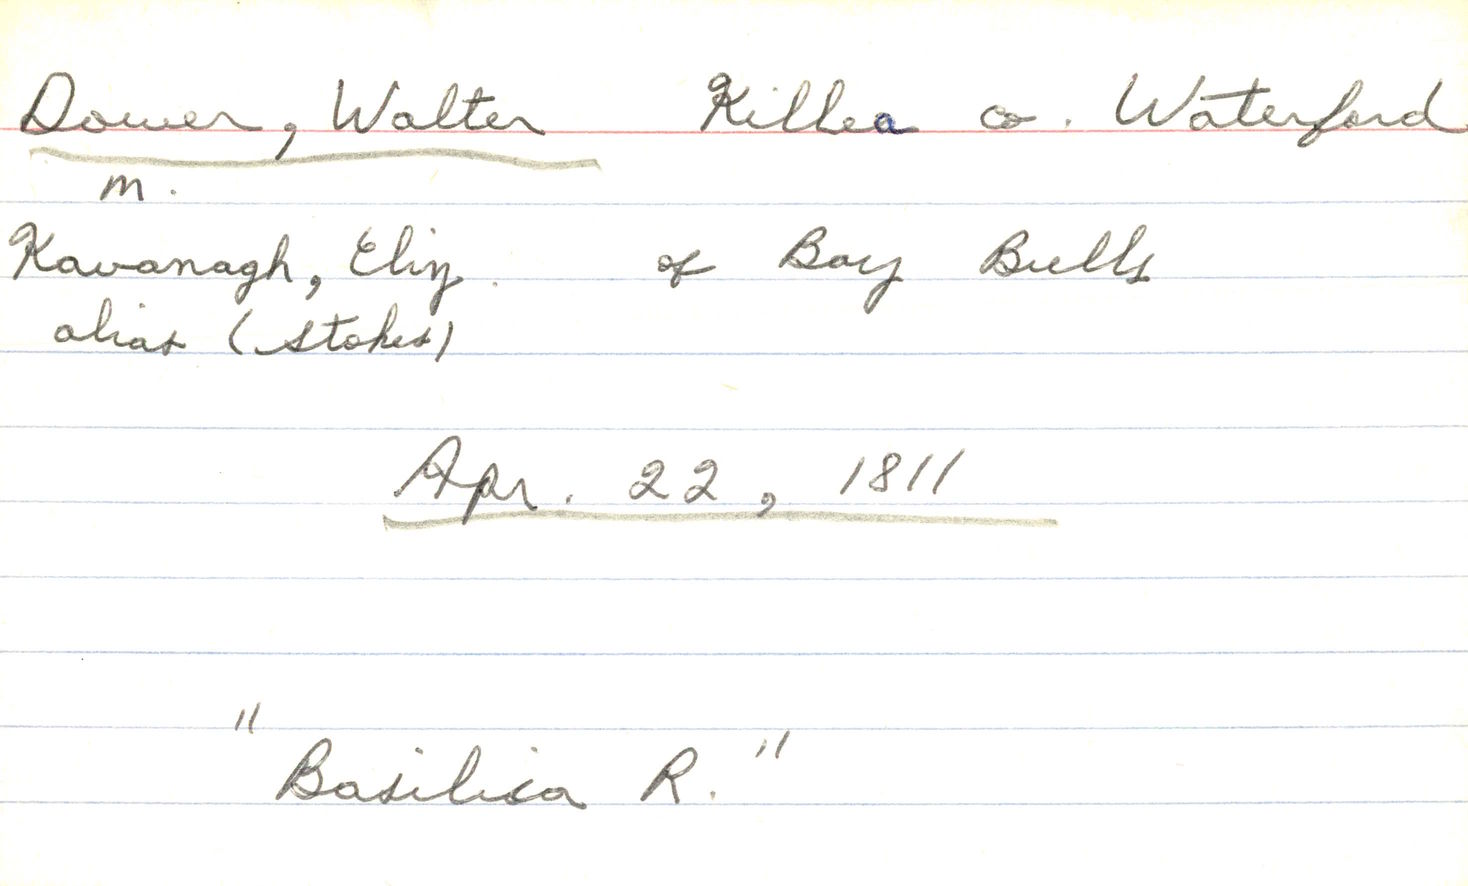 Dower, Walter Killea co. Waterford
m.
Kavanagh, Eliz. of Bay Bulls
alias (Stokes)
Apr. 22, 1811
"Basilica R."